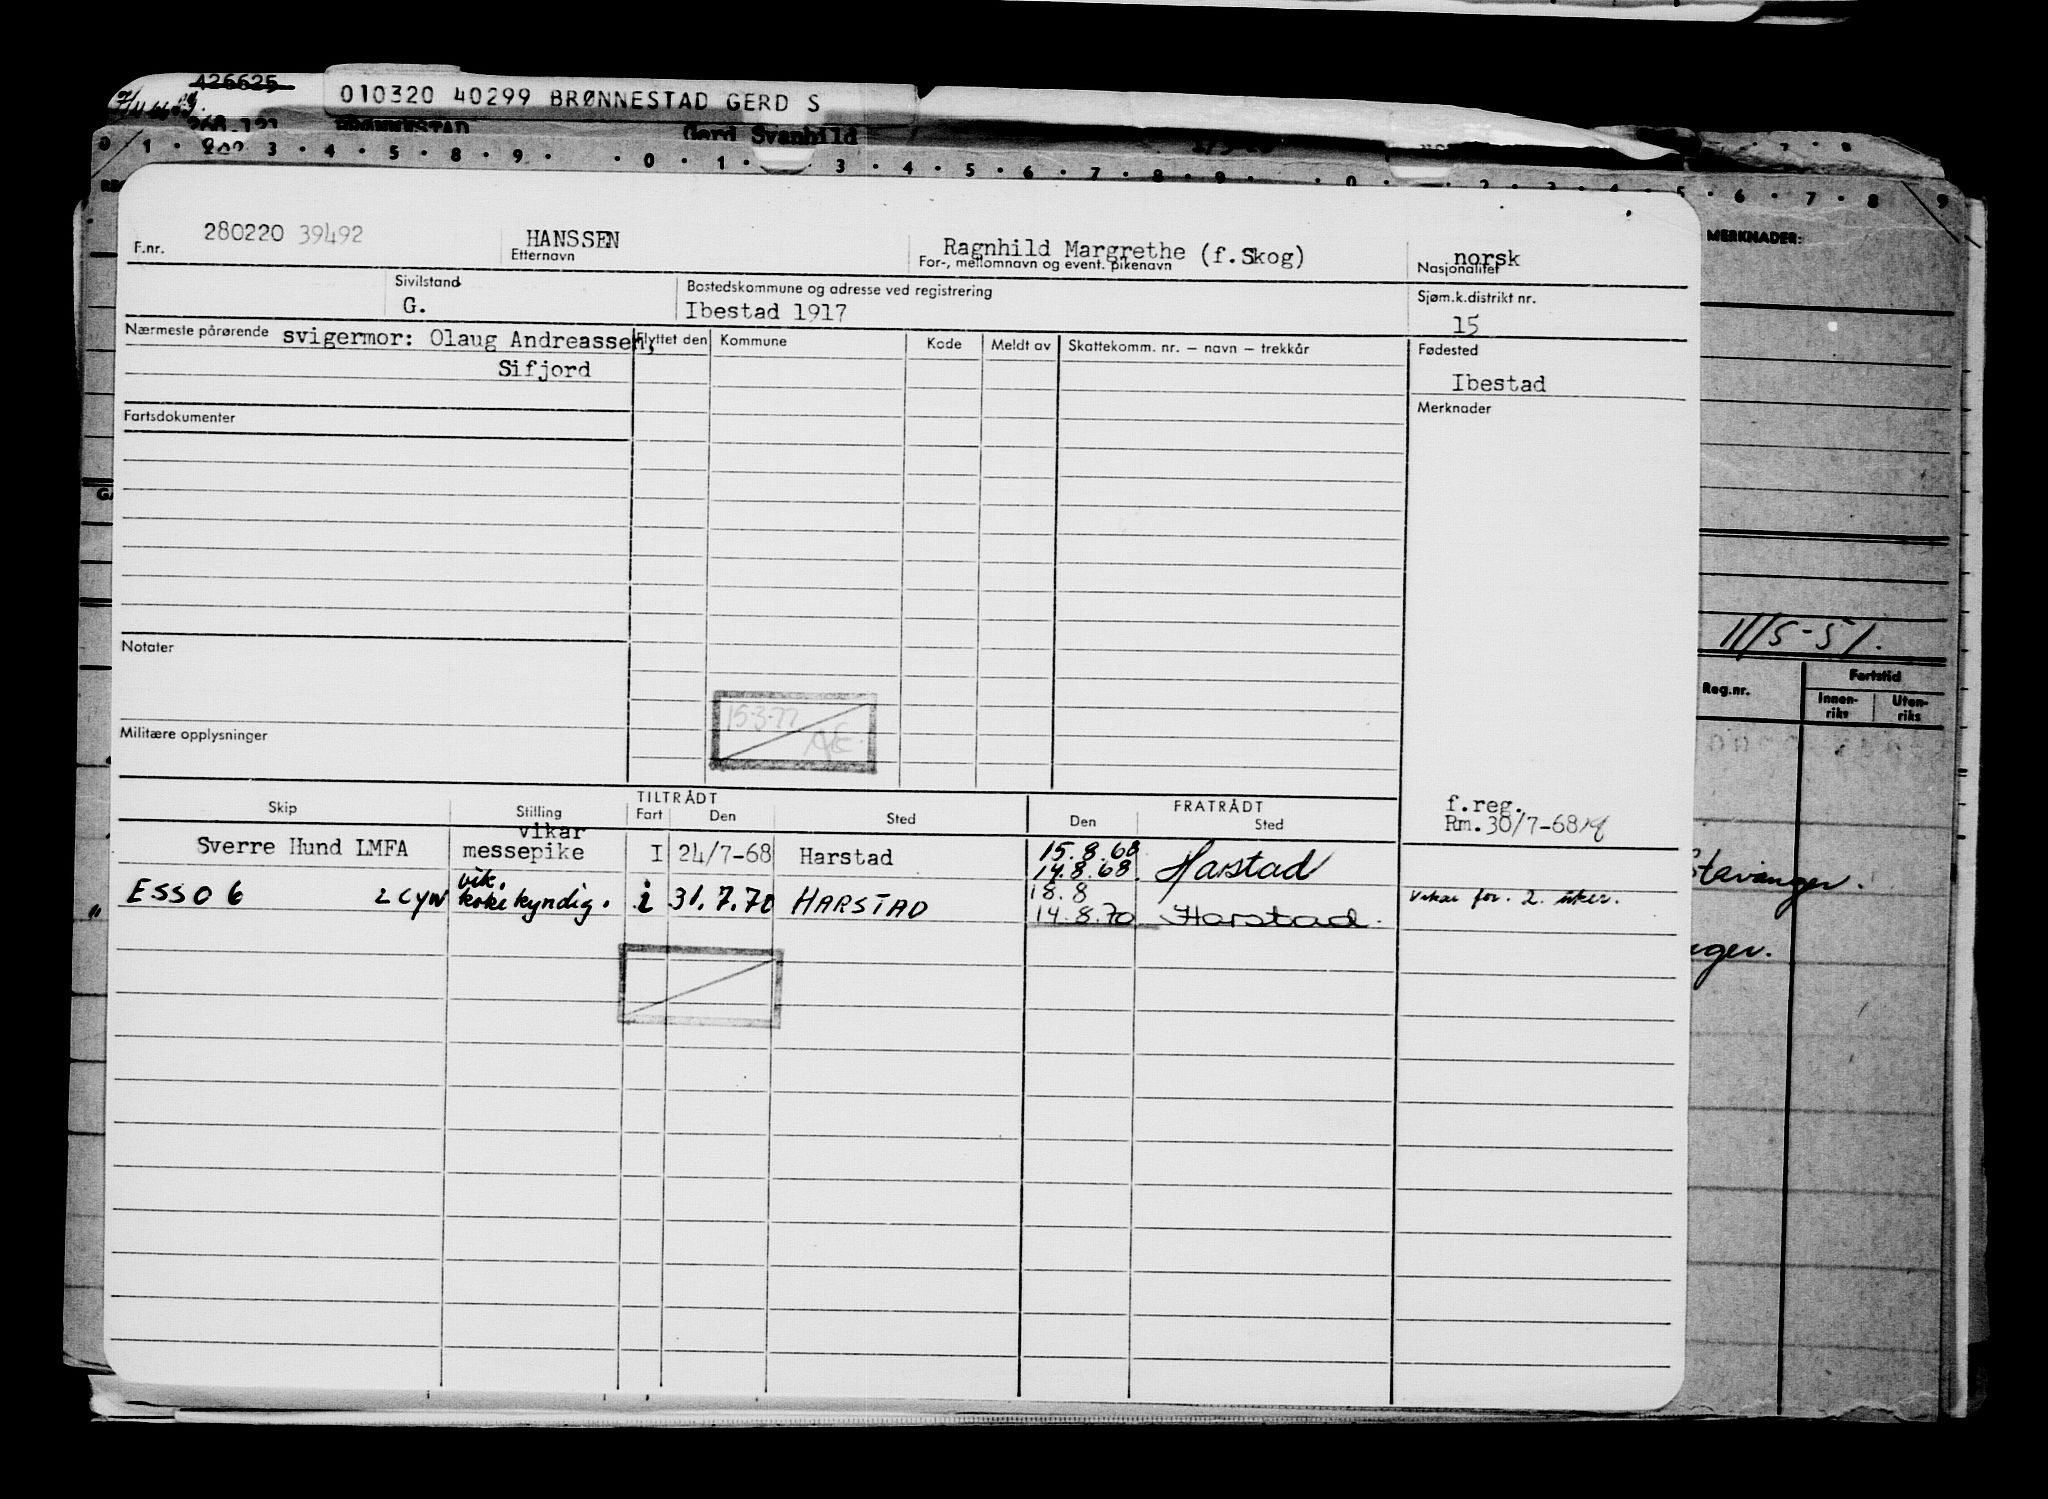 426625
010320 40299 BRØNNESTAD GERD S
268.121 BRØNNESTAD Gerd Svanhild
0 · 1 · 3 · 4 · 5 · 8 · 9 · · 0 · 1 · 3 · 4 · 5 · 6 · 7 · 8 · 9 · · 0 · 2 · 3 · 4 · 5 · 6 · 7 · 8 · 9
MERKNADER:
F.nr. 280220 39492
HANSSEN
Etternavn
Ragnhild Margrethe (f.Skog)
For-, mellomnavn og event. pikenavn
norsk
Nasjonalitet
Sivilstand
G.
Bostedskommune og adresse ved registrering
Ibestad 1917
Sjøm.k.distrikt nr.
15
Nærmeste pårørende svigermor: Olaug Andreassen,
Sifjord
Flyttet den Kommune Kode Meldt av Skattekomm. nr. – navn – trekkår
Fødested
Ibestad
Fartsdokumenter
Merknader
Notater
11/5-51.
Reg.nr. Fartstid
Innen-riks Uten-riks
15-3-77
Militære opplysninger
TILTRÅDT FRATRÅDT
Skip Stilling Fart Den Sted Den Sted
f.reg.
Rm.30/7-68
Sverre Hund LMFA vikar messepike I 24/7-68 Harstad 15.8.68 14.8.68. Harstad
ESSO 6 LCYW vik. kokekyndig. i 31.7.70 HARSTAD 18.8 14.8.70 Harstad. Vikar for. 2. uker.
Stavanger.
nger.